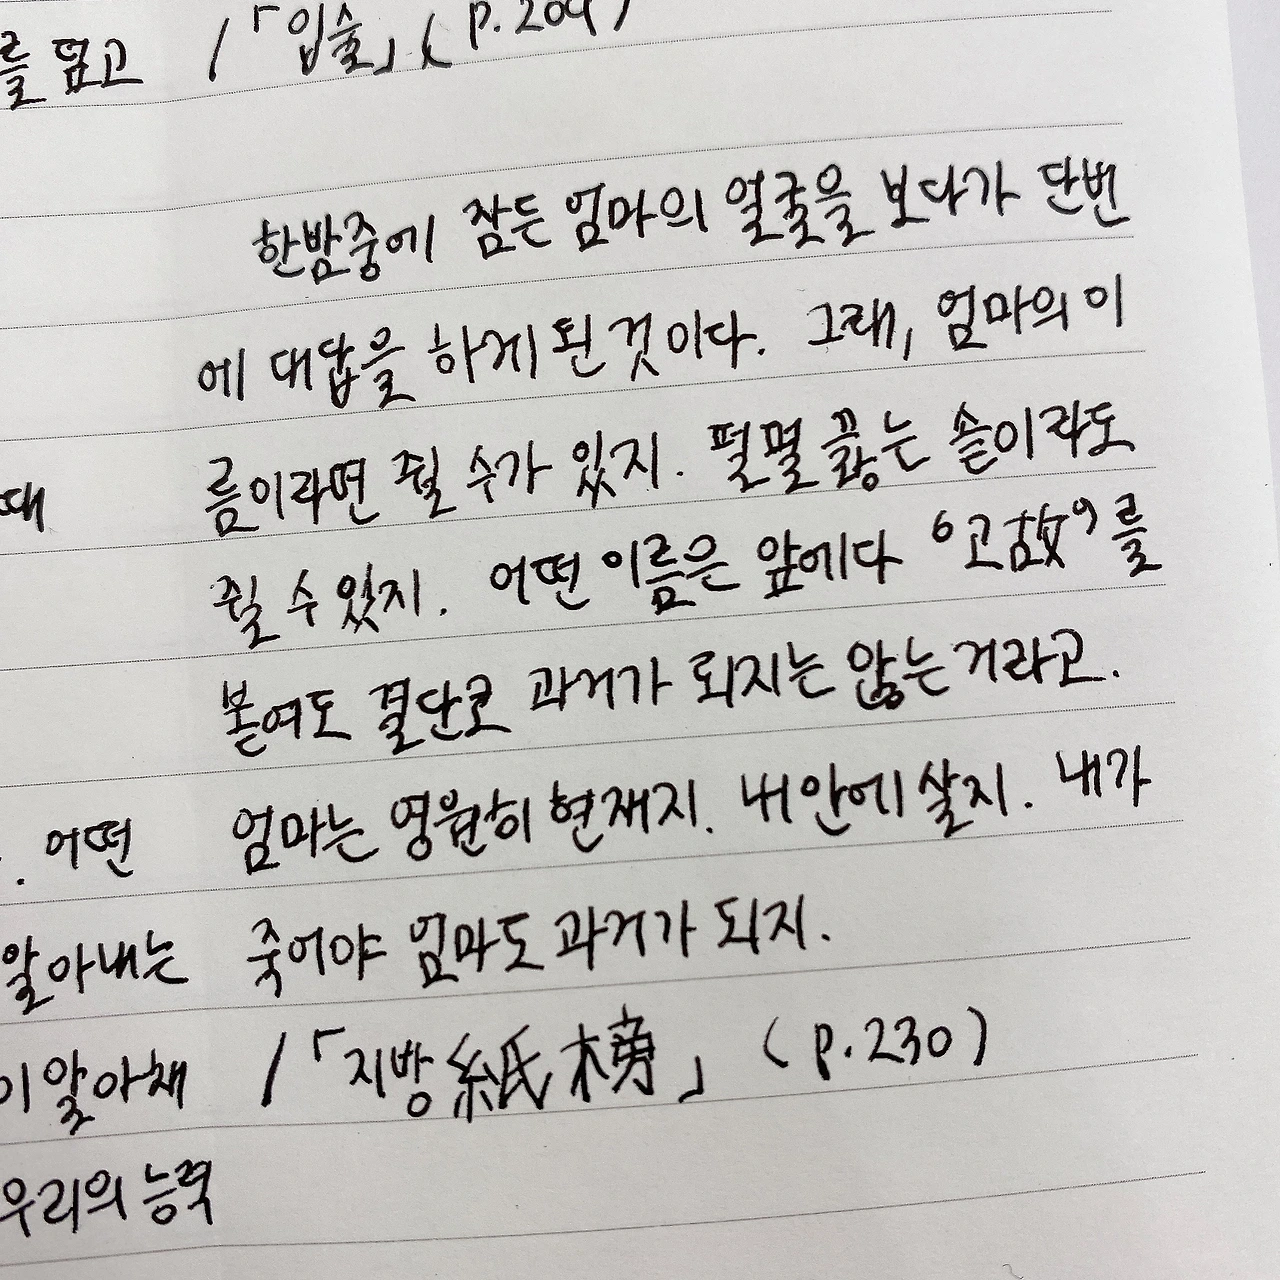 를 덮고 /「입술」(p.209)
한밤중에 잠든 엄마의 얼굴을 보다가 단번
에 대답을 하게 된 것이다. 그래, 엄마의 이
때 름이라면 쥘 수가 있지. 펄펄 끓는 솥이라도
쥘 수 있지. 어떤 이름은 앞에다 '고故'를
붙여도 결단코 과거가 되지는 않는 거라고.
. 어떤 엄마는 영원히 현재지. 내 안에 살지. 내가
알아내는 죽어야 엄마도 과거가 되지.
이 알아채 /「지방紙榜」(p.230)
우리의 능력